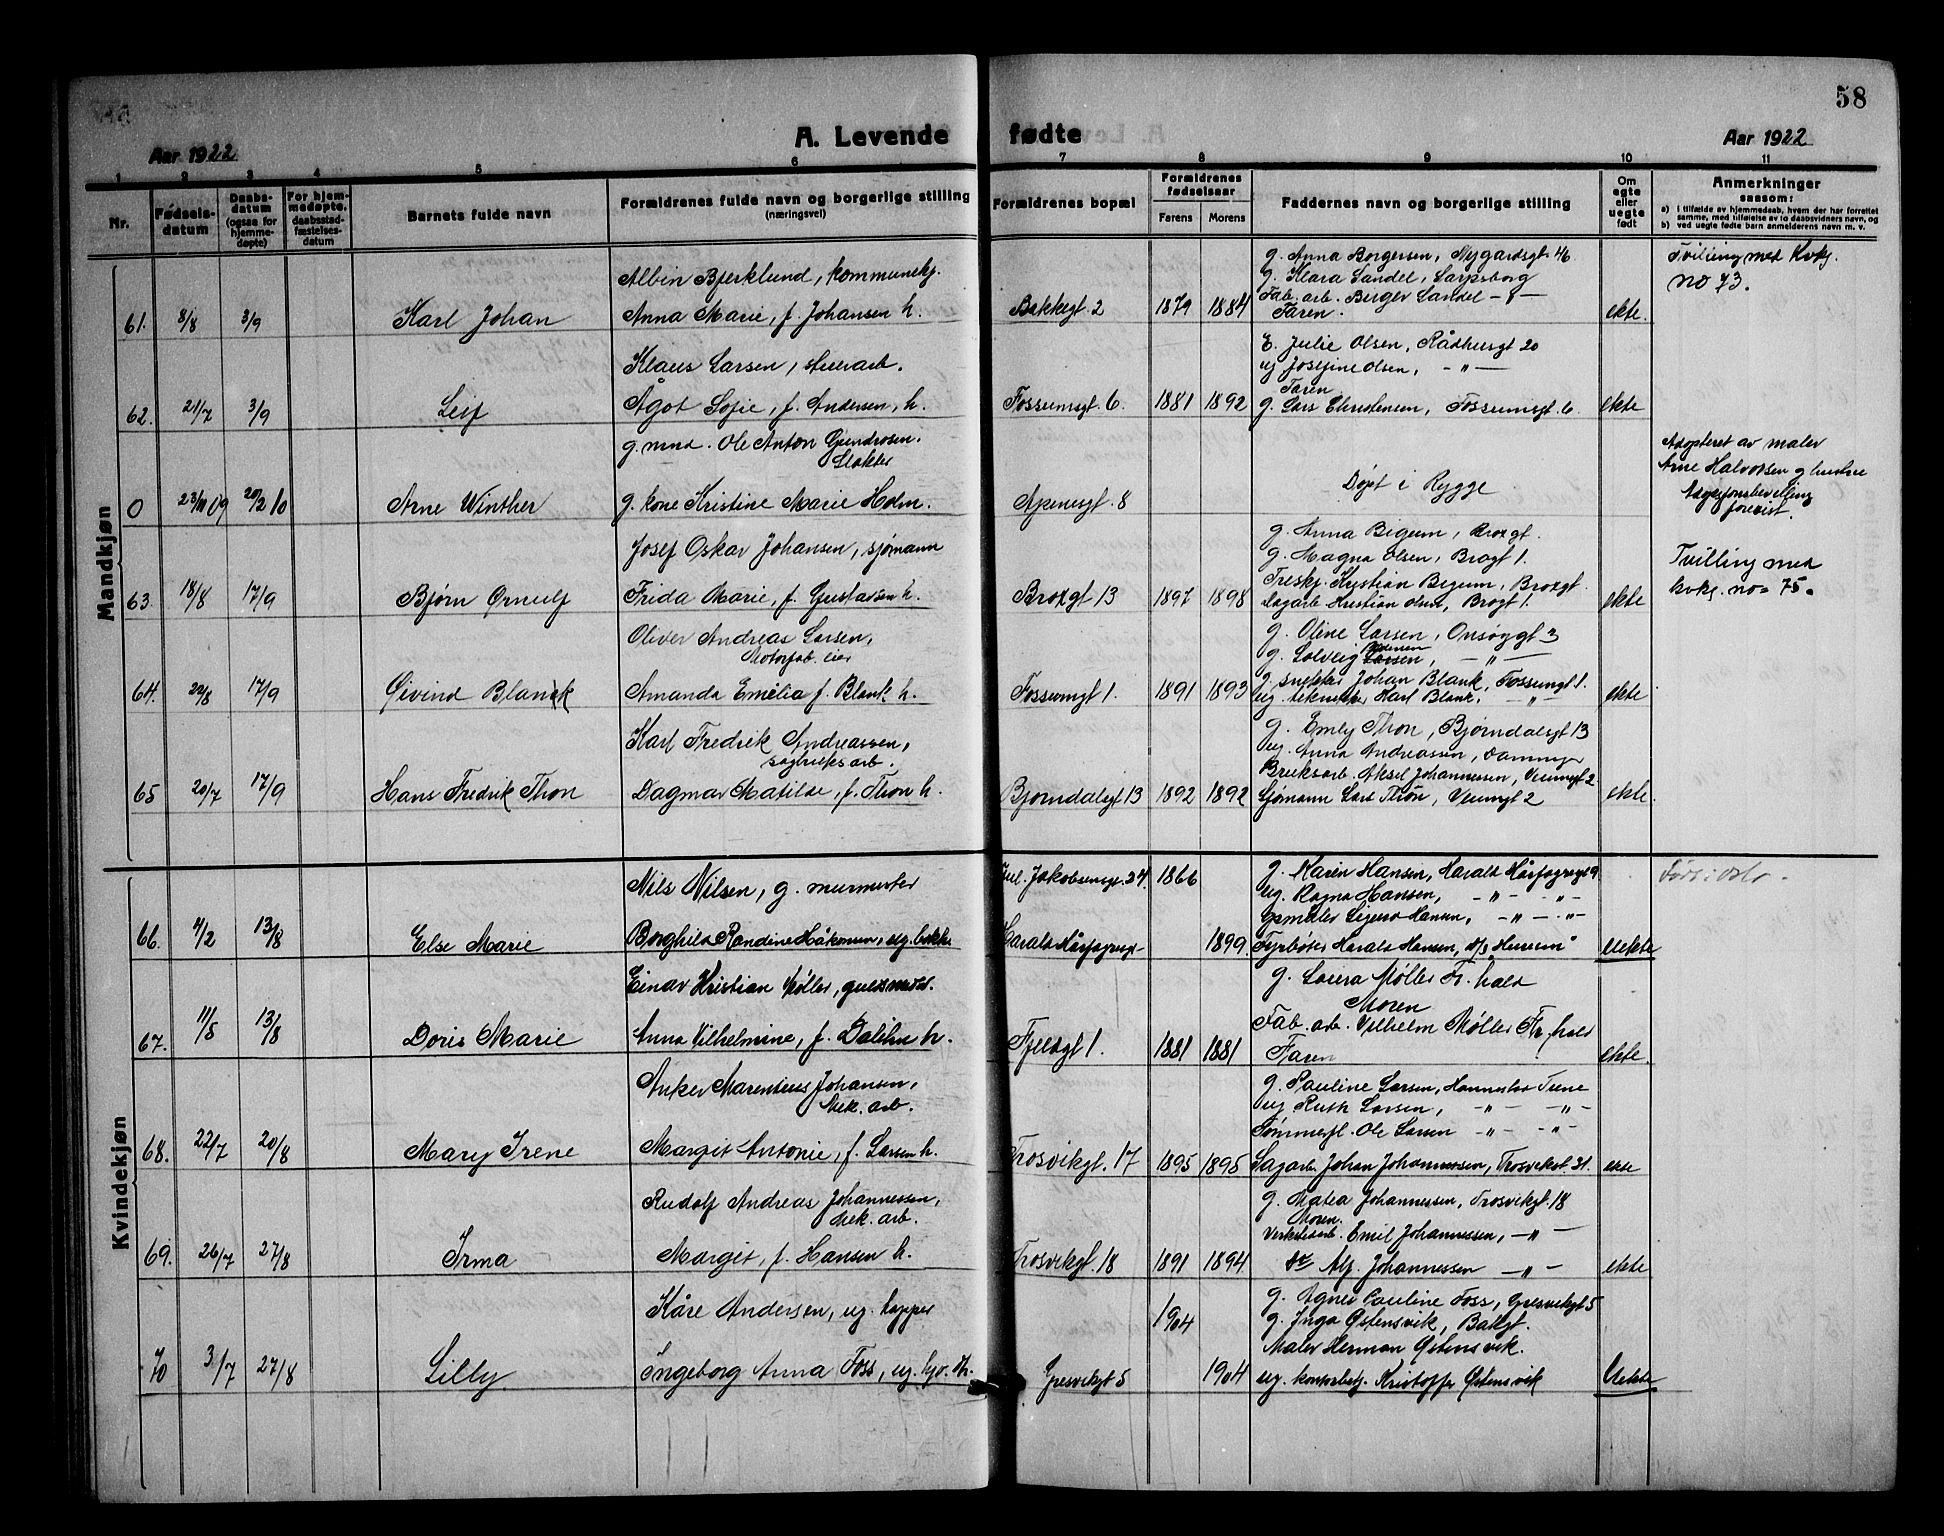 58
A. Levende fødte
Aar 1922
Aar 1922
1 2 3 4 5 6 7 8 9 10 11
Nr.
Fødselsdatum
Daabsdatum (ogsaa for hjemmedøpte)
For hjemmedøpte, daabsstadfæstelsesdatum
Barnets fulde navn
Forældrenes fulde navn og borgerlige stilling (næringsvei)
Forældrenes bopæl
Forældrenes fødselsaar
Farens Morens
Faddernes navn og borgerlige stilling
Om egte eller uegte født
Anmerkninger saasom:
a) i tilfælde av hjemmedaab, hvem der har forrettet samme, med tilføielse av to daabsvidners navn, og
b) ved uegte fødte barn anmelderens navn m. v.
Mandkjøn
Albin Bjerklund, kommunekj.
61. 8/8 3/9 Karl Johan Anna Marie, f. Johansen h. Bakkegt 2 1879 1884 ekte.
g. Anna Borgersen, Nygardsgt 46
g. Klara Sandel, Sarpsborg
Fab. arb. Berger Sandel -"-
Faren.
Tvilling med Kvkj.
no 73.
Klaus Larsen,
62. 21/7 3/9 Leif Ågot Sofie, f. Andersen, h. Fossumsgt. 6. 1881 1892 ekte
E. Julie Olsen, Rådhusgt 20
ug Josefine Olsen, -"-
Faren
g. Lars Christensen, Fossumsgt. 6
g. mnd. Ole Anton Gundrosen.
Slakter
0 23/11 09 20/2 10 Arne Winther g. kone Kristine Marie Holm. Apenesgt. 8
Døpt i Rygge
Adopteret av maler
Arne Halvorsen g hustru
Adopsjonsbevilling
forevist.
Josef Oskar Johansen, sjømann
63. 18/8 17/9 Bjørn Ørnulf Frida Marie, f. Gustavsen h. Brogt 13 1897 1898 ekte
g. Anna Begum, Brogt.
g. Magna Olsen, Brogt 1.
Treskj. Kristian Begum, Brogt
Dagarb Kristian Olsen, Brogt 1.
Tvilling med
kvkj. no 75.
Oliver Andreas Larsen,
Motorfab. eier
64. 22/8 17/9 Øivind Blank Amanda Emelia f. Blank h. Fossumgt 1. 1891 1893 ekte
g. Oline Larsen, Onsøygt 3
g. Solveig Larsen, -"-
g. snekker Johan Blank, Fossumgt 1.
ug. tekniker Karl Blank, -"-
Karl Fredrik Andreassen,
sagbruksarb.
65 20/7 17/9 Hans Fredrik Thon Dagmar Matilde, f. Thon h. Bjørndalsgt 13 1892 1892 ekte.
g. Emly Thon, Bjørndalsgt 13
ug. Anna Andreassen,
Bruksarb. Aksel Johannessen, Veumgt 2
Sjømann Lars Thon, Veumgt 2
Kvindekjøn
Nils Nilsen, g. murmester Jul. Jakobsensgt. 34. 1866
66. 4/2 13/8 Else Marie Borghild Randine Håkonsen, ug. Harald Hårfagresgt- 1899 Uekte
g. Karen Hansen, Harald Hårfagresgt 9
ug. Ragna Hansen, -"- -"-
-"- -"-
Fyrbøter Harald Hansen,
Født i Oslo.
Einar Kristian Møller, gullsmed.
67. 11/5 13/8 Doris Marie Anna Vilhelmine, f. Dalihn h. Fjeldgt 1. 1881 1881 ekte.
g. Laura Møller Fr. hald
Moren
Fab. arb. Vilhelm Møller Fr. hald
Faren
Anker Marentius Johansen,
Mek. arb.
68. 22/7 20/8 Mary Irene Margit Antonie, f. Larsen h. Trosvikgt. 17 1895 1895 ekte
g. Pauline Larsen, Tune
ug. Ruth Larsen, -"- -"-
Ole Larsen -"- -"-
Sagarb. Johan Johannessen, Trosvikgt. 31.
Rudolf Andreas Johannessen,
Mek. arb.
69. 26/7 27/8 Irma Margit, f. Hansen h. Trosvikgt. 18 1891 1894 ekte
g. Matea Johannessen, Trosvikgt. 18
Moren.
Verkstedarb. Emil Johannessen, -"-
do Alf. Johannessen -"-
Kåre Andersen, ug. tapper 1904
70 3/7 27/8 Lilly Ingeborg Anna Foss, ug. Gresvikgt 5 1904 Uekte
g. Agnes Pauline Foss, Gresvikgt 5
g. Inga Østensvik,
Maler Herman Østensvik.
ug. kontorbetj. Kristoffer Østensvik